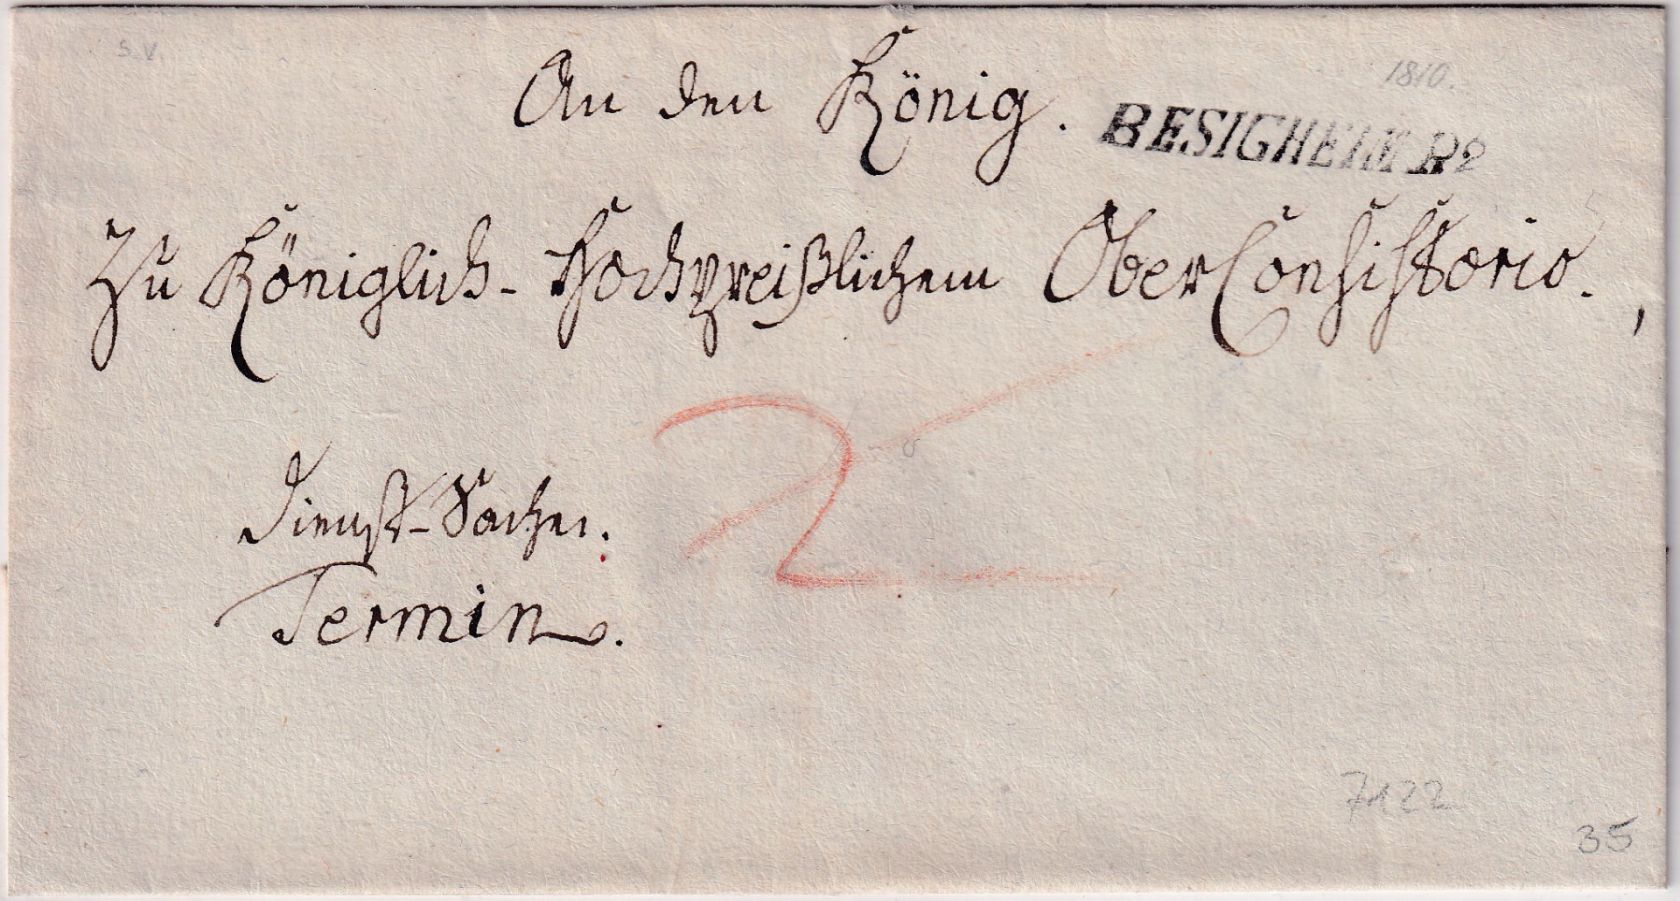 S.V.
An den König.
1810.
BESIGHEIM R2
Zu Königlich-Hochpreißlichem OberConsistorio.
2
Dienst-Sachen.
Termin.
7122
35